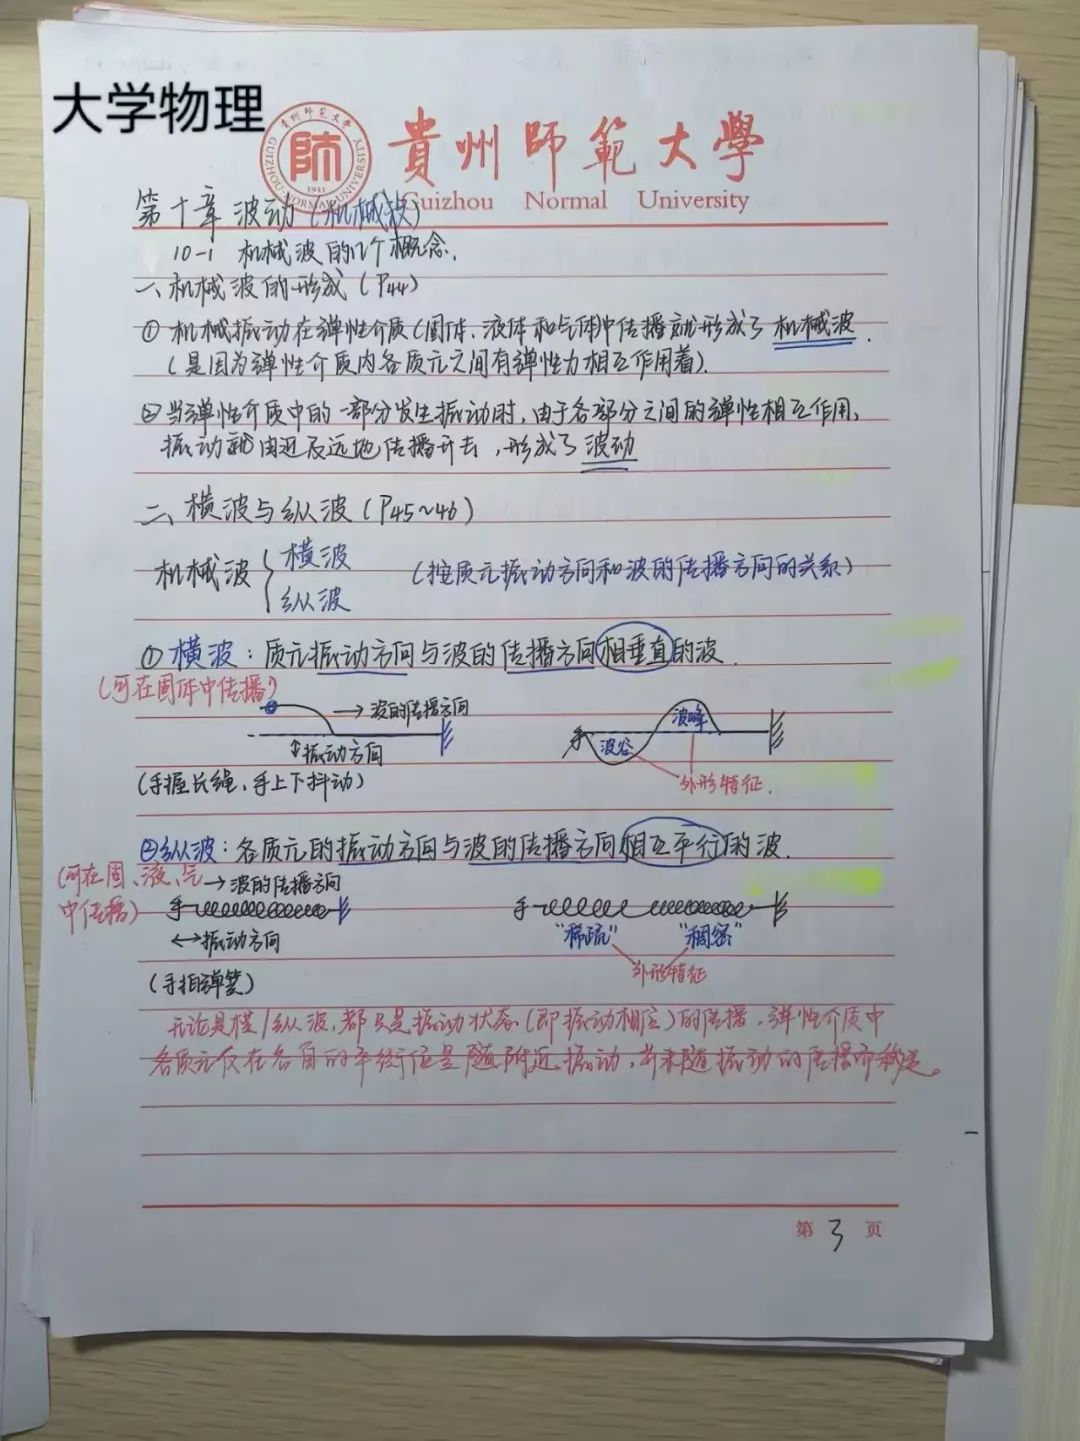 大学物理
貴州師範大學
Guizhou Normal University
師
貴州師范大学
GUIZHOU NORMAL UNIVERSITY
1941
第十章 波动(机械波)
10-1 机械波的几个概念.
一、机械波的形成(P44)
① 机械振动在弹性介质(固体、液体和气体)中传播就形成了机械波.
(是因为弹性介质内各质元之间有弹性力相互作用着).
② 当弹性介质中的一部分发生振动时,由于各部分之间的弹性相互作用,
振动就由近及远地传播开去,形成了波动
二、横波与纵波(P45~46)
机械波{横波
纵波
(按质元振动方向和波的传播方向的关系)
① 横波:质元振动方向与波的传播方向相垂直的波.
(可在固体中传播)
→波的传播方向
↕振动方向
(手握长绳,手上下抖动)
手
波谷
波峰
外形特征.
②纵波:各质元的振动方向与波的传播方向相互平行的波.
(可在固、液、气
中传播)
→波的传播方向
手
↔振动方向
(手拍弹簧)
手
"稀疏" "稠密"
外形特征
无论是横/纵波,都只是振动状态(即振动相位)的传播,弹性介质中
各质元仅在各自的平衡位置随附近振动,并未随振动的传播而移走。
第 3 页